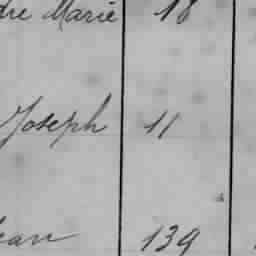 dre Marie 18
Joseph 11
ean 139